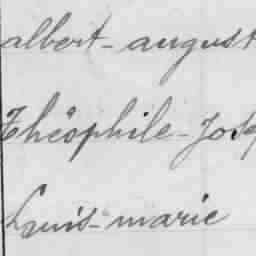 albert-august
Théophile-Jose
Louis-marie